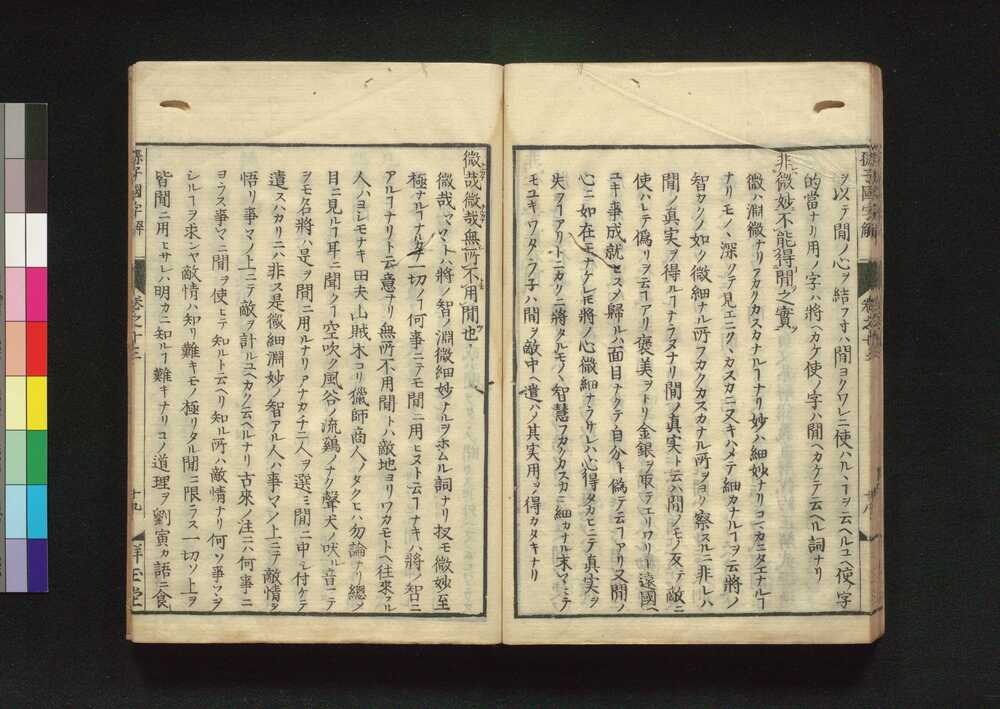 孫子國字解
卷之十三
ヲ以テ間ノ心ヲ結フ寸ハ間ヨクワレニ使ハル丶ヿヲ云ヘルユヘ使ノ字
的當ナリ用ノ字ハ將ヘカケ使ノ字ハ間ヘカケテ云ヘル詞ナリ
非微妙不能得間之實
微ハ淵微ナリフカクカスカナルヿナリ妙ハ細妙ナリコマカニタエナルヿ
ナリモノヽ深クテ見エニクヽカスカニ又キハメテ細カナルヿヲ云將ノ
智カクノ如ク微細ナル所フカクカスカナル所ヲヨク察スルニ非レハ
間ノ真実ヲ得ルヿナラヌナリ間ノ真実ト云ハ間ノモノ反テ敵ニ
使ハレテ偽リヲ云ヿアリ褒美ヲトリ金銀ヲ取テエリワリニ遠國ヘ
ユキ事成就セスメ歸ルハ面目ナクテ自分ト偽テ云ヿアリ又間ノ
心ニ如在モナケレ𪜈將ノ心微細ナラサレハ心得タカヒニテ真実ヲ
失フヿアリトニカクニ將タルモノハ智慧フカクカスカニ細カナル末マニテ
モユキワタラ子ハ間ヲ敵中ヘ遣ハメ其実用ヲ得カタキナリ
微哉微哉無所不用間也
微哉々々トハ將ノ智ノ淵微細妙ナルヲホムル詞ナリ扨モ微妙至
極ナルヿナルカナ一切ノヿ何事ニテモ間ニ用ヒスト云ヿナキハ將ノ智ニ
アルヿナリト云意ナリ無所不用間トハ敵地ヨリワカモトヘ往來スル
人ハヨレモナキ田夫山賎木コリ獵師商人ノタクヒハ勿論ナリ總メ
目ニ見ルヿ耳ニ聞クヿ空吹ク風谷ノ流鷄ノナク聲犬ノ吠ル音ニテ
ヲモ名將ハ是ヲ間ニ用ルナリアナカチニ人ヲ選ミ間ニ申シ付ケテ
遣スハカリニハ非ス是微細淵妙ノ智アル人ハ事マノ上ニテ敵情ヲ
悟リ事マノ上ニテ敵ヲ計ルユヘカク云ヘルナリ古來ノ注ニハ何事ニ
ヨラス事マニ間ヲ使ヒテ知ルト云ヘリ知ル所ハ敵情ナリ何ソ事マヲ
シルヿヲ求ンヤ敵情ハ知リ難キモノ極リタル間ニ限ラス一切ソノ上ヲ
皆間ニ用ヒサレハ明カニ知ルヿ難キナリコノ道理ヲ劉寅カ語ニ食
孫子國字解
卷之十三
十九